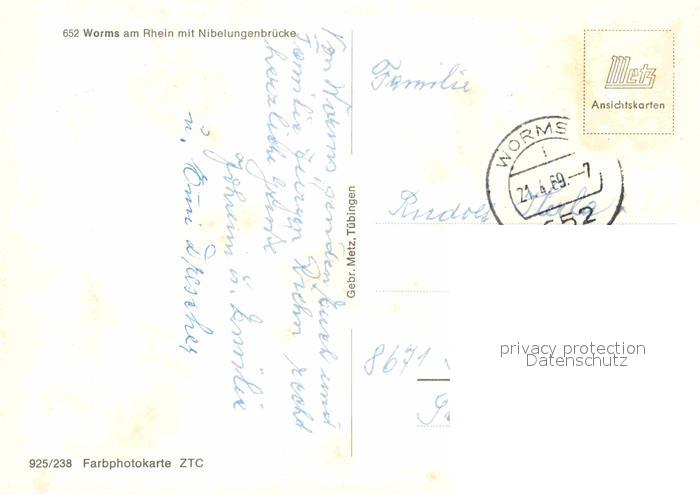 652 Worms am Rhein mit Nibelungenbrücke
Von Worms senden Euch und
Familie Jürgen recht
herzliche Grüße
Johann u. Emilie
u. Emi
Gebr. Metz, Tübingen
925/238 Farbphotokarte ZTC
Metz
Ansichtskarten
WORMS
1
21.4.69.-7
652
Familie
Rudolf
8671
privacy protection
Datenschutz